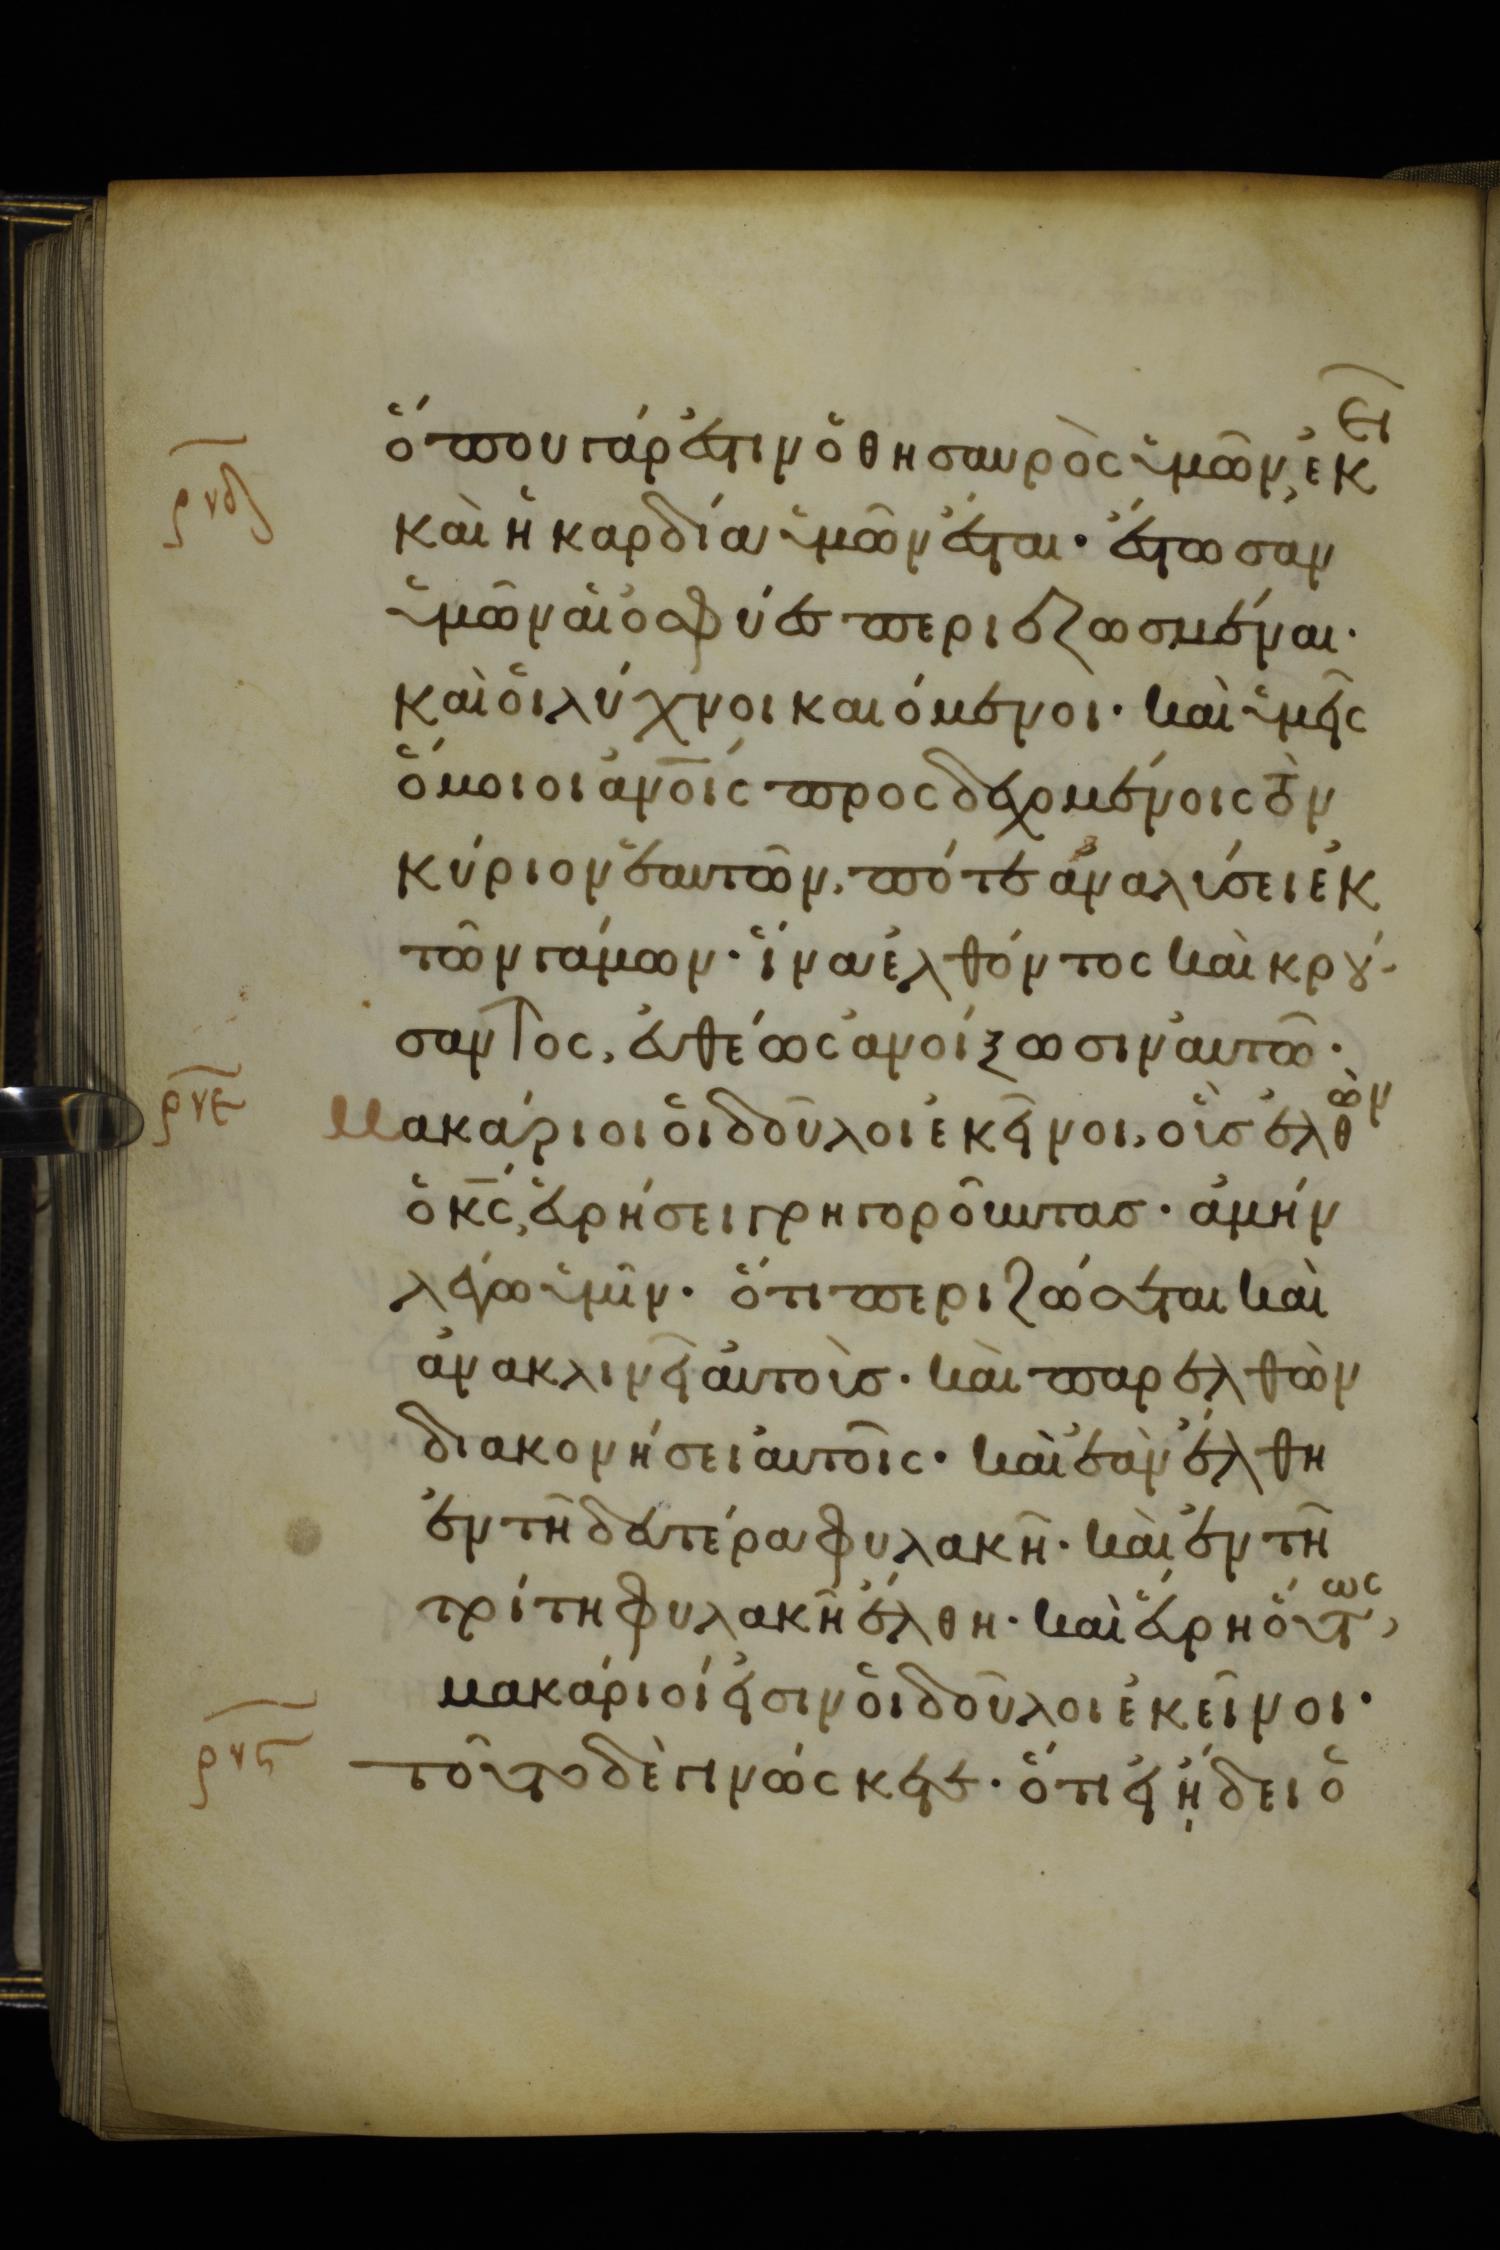 ὅπου γάρ ἐστιν ὁ θησαυρὸς ὑμῶν, ἐκεῖ
ρνδ
καὶ ἡ καρδία ὑμῶν ἔσται· ἔστωσαν
ὑμῶν αἱ ὀσφύες περιεζωσμέναι·
καὶ οἱ λύχνοι καιόμενοι· καὶ ὑμεῖς
ὅμοιοι ἀνοις προσδεχομένοις τὸν
κύριον ἑαυτῶν, πότε ἀναλύσει ἐκ
τῶν γάμων· ἵνα ἐλθόντος καὶ κρού-
σαντος, εὐθέως ἀνοίξωσιν αὐτῶ·
ρνε
Μακάριοι οἱ δοῦλοι ἐκεῖνοι, οὓς ἐλθὼν
ὁ κς, εὑρήσει γρηγοροῦντας· ἀμὴν
λέγω ὑμῖν· ὅτι περιζώσεται καὶ
ἀνακλινεῖ αὐτοὺς· καὶ παρελθὼν
διακονήσει αὐτοῖς· καὶ ἐὰν ἔλθη
ἐν τῆ δευτέρα φυλακῆ· καὶ ἐν τῆ
τρίτη φυλακῆ ἔλθη· καὶ εὕρη οὕτως,
μακάριοί εἰσιν οἱ δοῦλοι ἐκεῖνοι·
ρνς
τοῦτο δὲ γινώσκετε· ὅτι εἰ ᾔδει ὁ